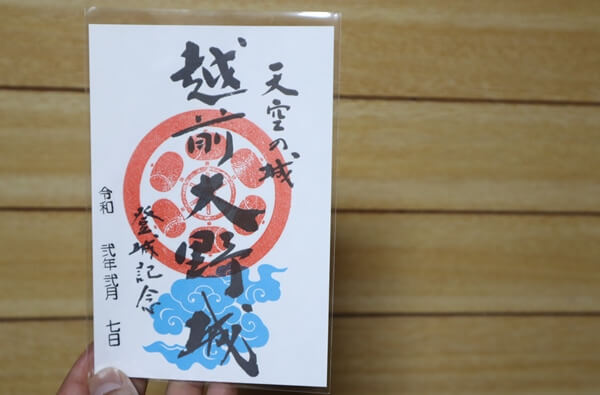 天空の城
越前大野城
登城記念
令和 弐年弐月 七日